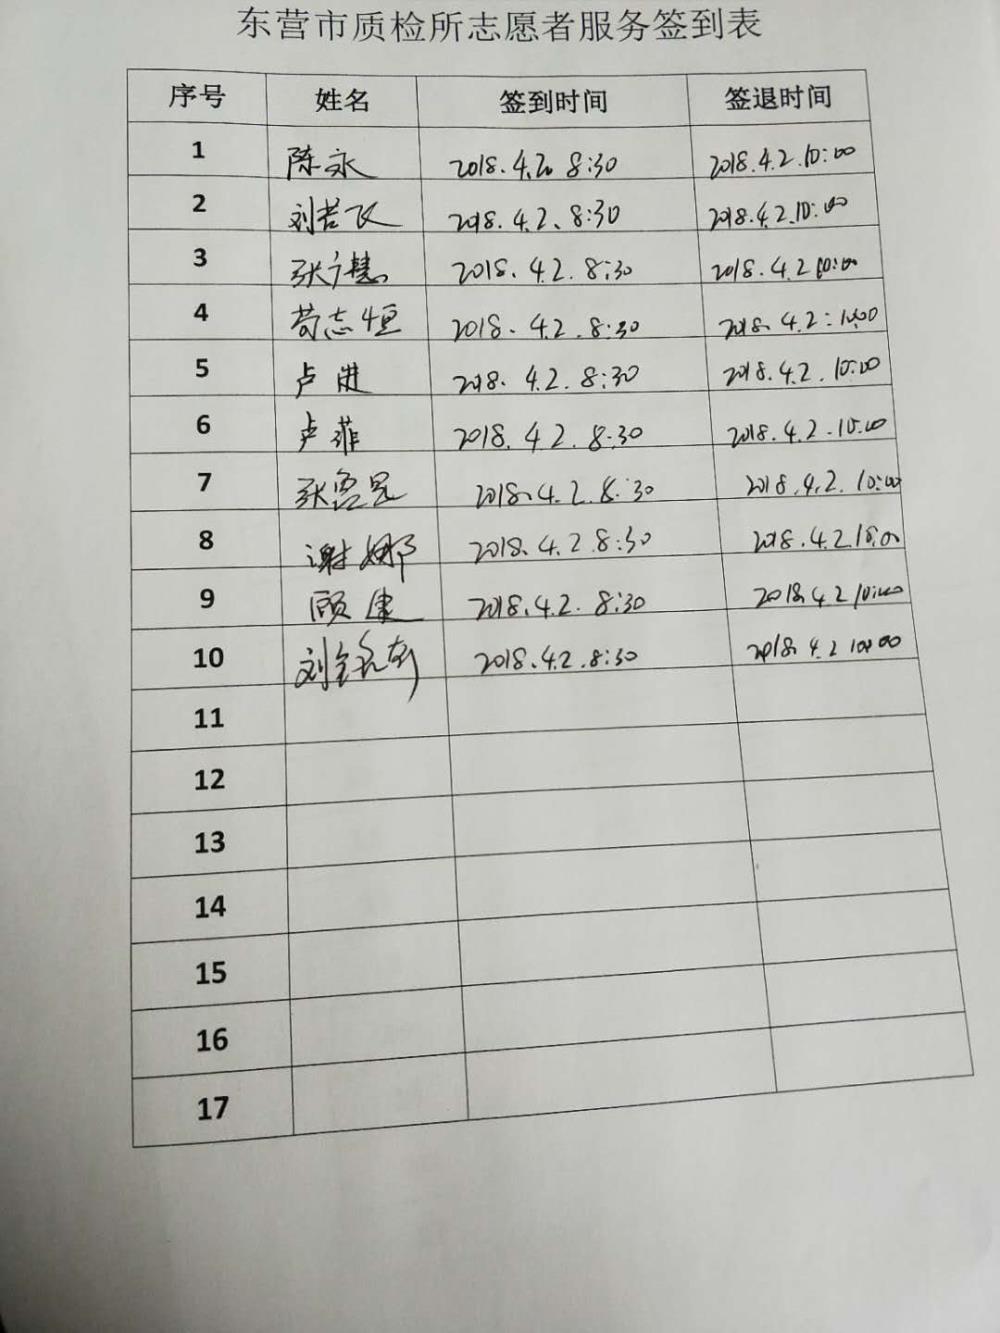 东营市质检所志愿者服务签到表
序号 姓名 签到时间 签退时间
1 陈永 2018.4.2. 8:30 2018.4.2.10:00
2 刘若飞 2018.4.2.8:30 2018.4.2.10:00
3 张慧 2018.4.2.8:30 2018.4.2 10:00
4 苟志恒 2018.4.2.8:30 2018.4.2:10:00
5 卢进 2018.4.2.8:30 2018.4.2.10:00
6 卢菲 2018.4.2.8:30 2018.4.2.10:00
7 张 2018.4.2.8:30 2018.4.2.10:00
8 谢娜 2018.4.2.8:30 2018.4.2.10:00
9 顾建 2018.4.2.8:30 2018.4.2 10:00
10 刘 2018.4.2.8:30 2018.4.2 10:00
11
12
13
14
15
16
17